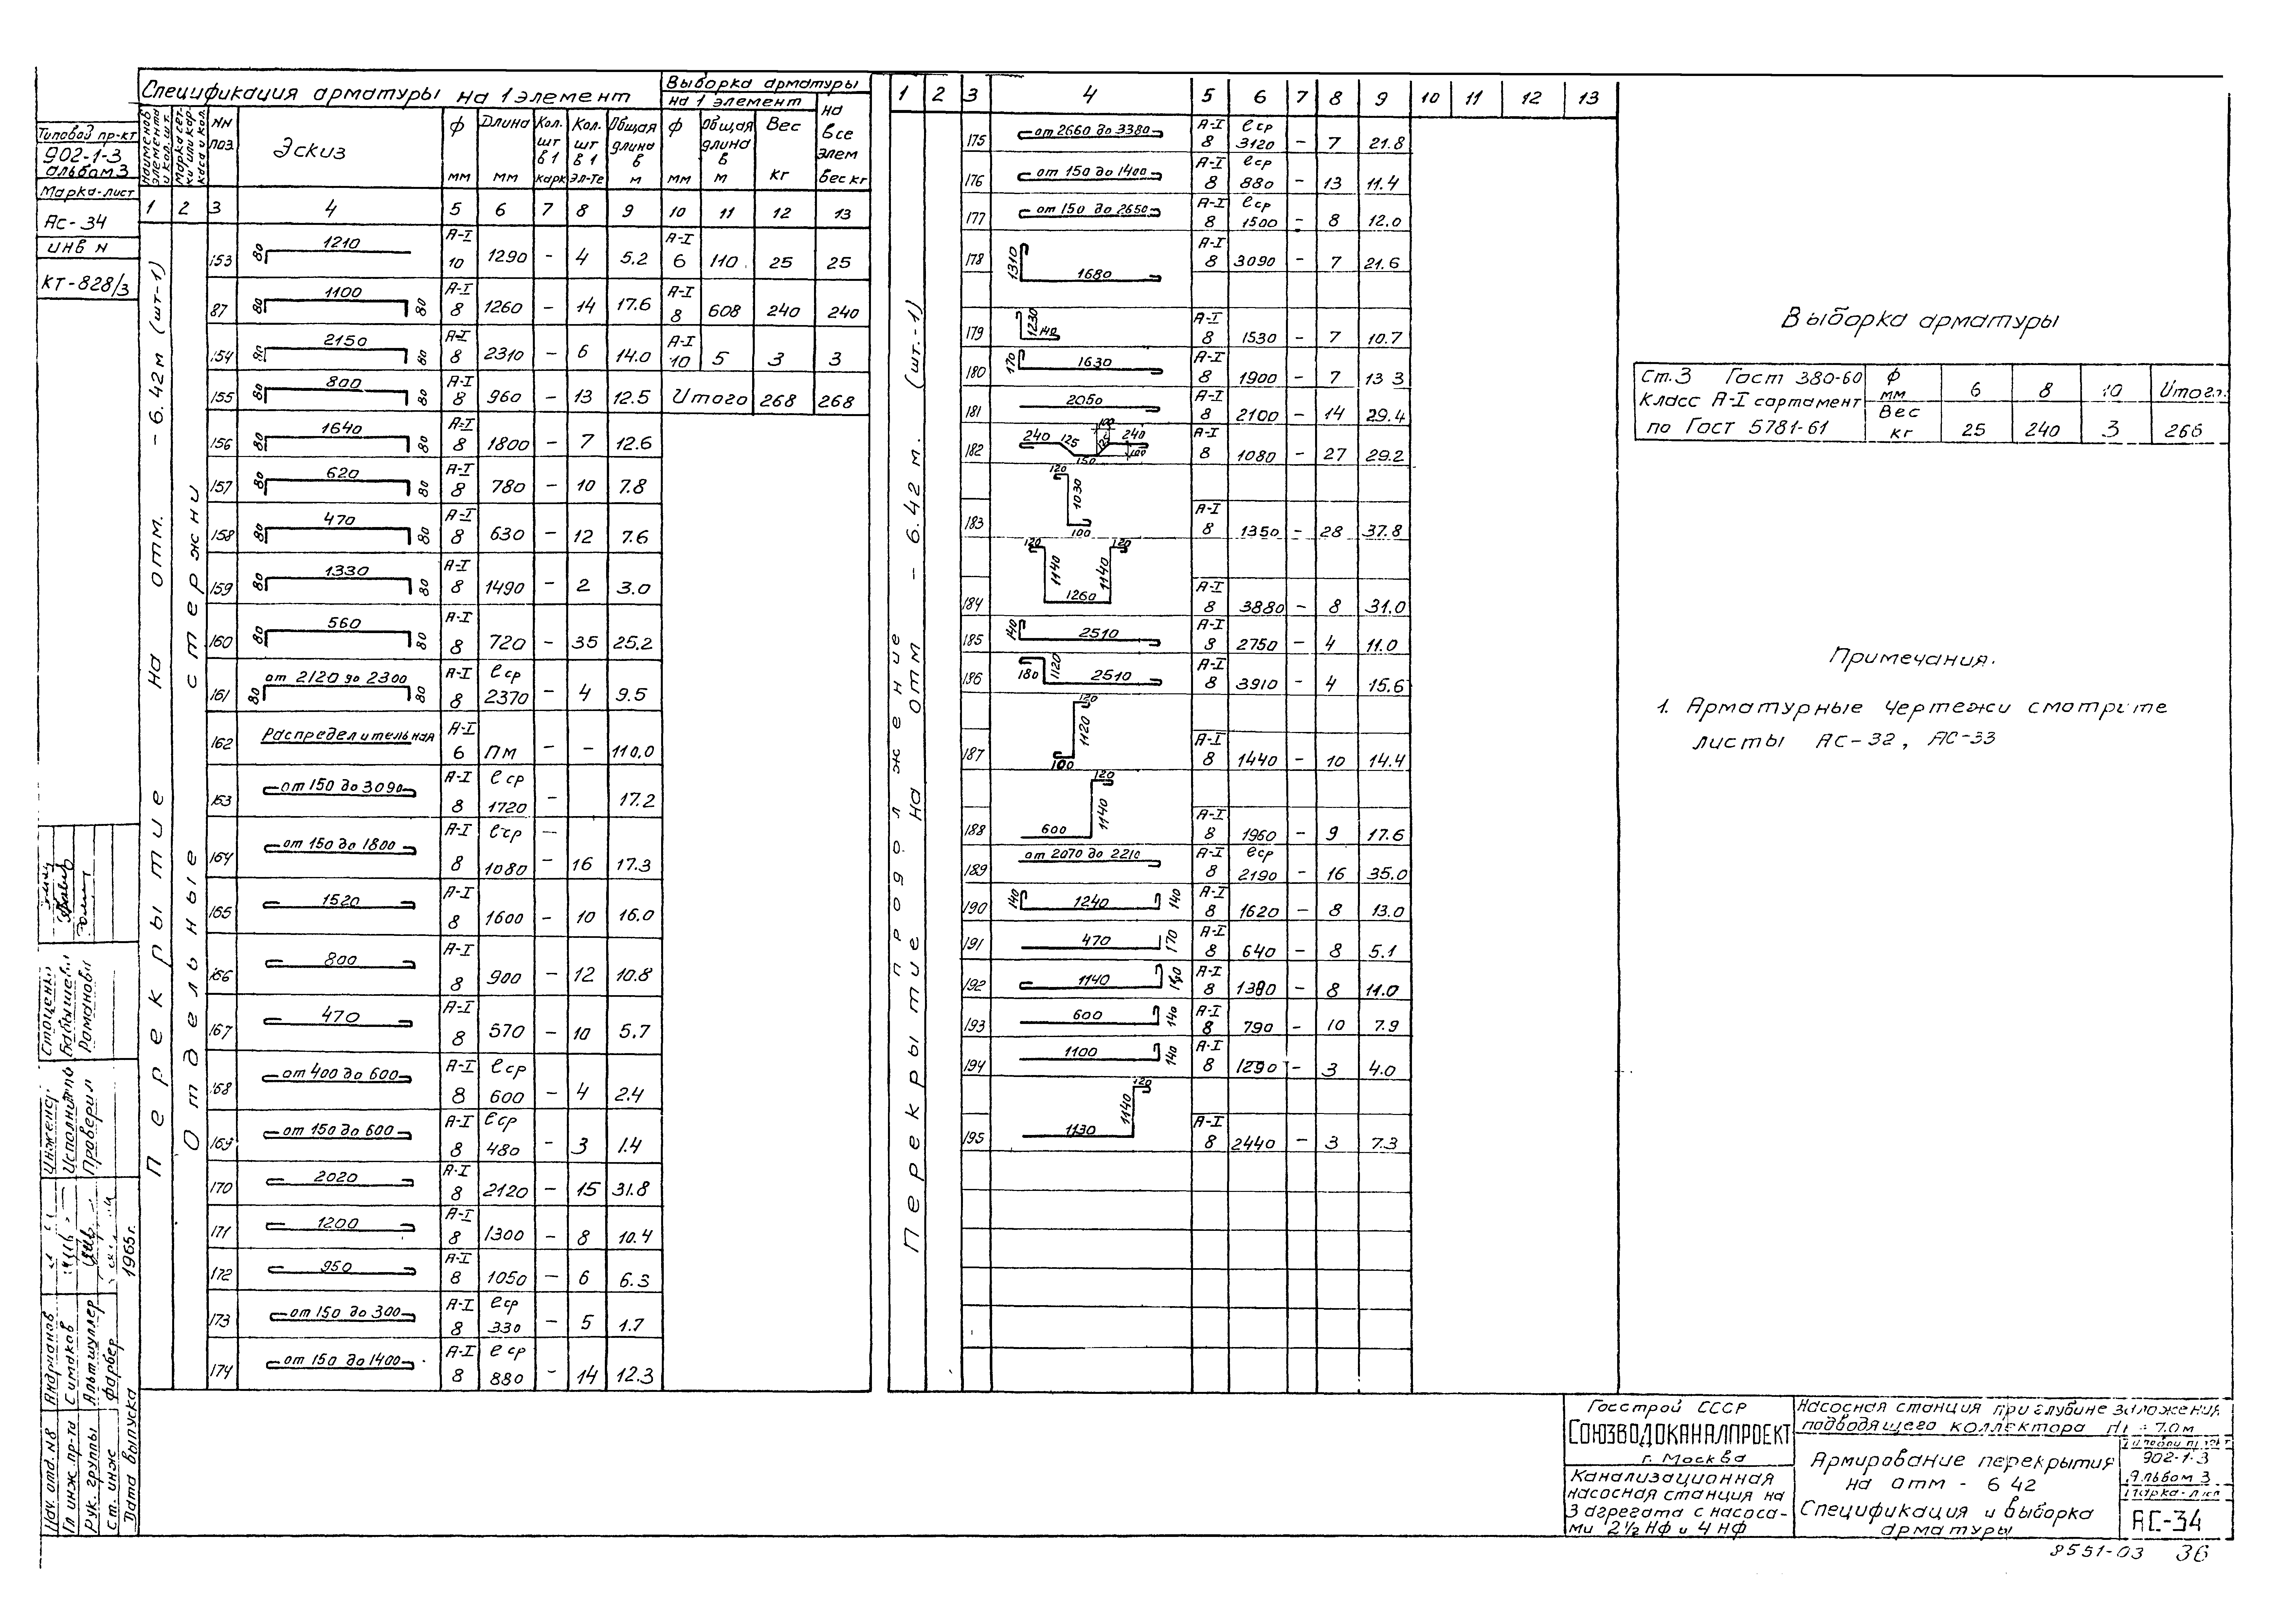 Типовой пр-кт
902-1-3
альбом 3
Марка-лист
АС-34
инв N
КТ-828/3
Спецификация арматуры на 1 элемент
Выборка арматуры
на 1 элемент
на все элем вес кг
Наименов элемента и кол. шт.
Марка сетки или каркаса и кол.
NN поз.
Эскиз
ф мм
Длина мм
Кол. шт в 1 карк
Кол. шт в 1 эл-те
Общая длина в м
ф мм
Общая длина в м
Вес кг
1 2 3 4 5 6 7 8 9 10 11 12 13
Перекрытие на отм. - 6.42 м (шт-1)
Отдельные стержни
153 80 1210 А-I 10 1290 - 4 5.2 А-I 6 110 25 25
87 80 1100 80 А-I 8 1260 - 14 17.6 А-I 8 608 240 240
154 80 2150 80 А-I 8 2310 - 6 14.0 А-I 10 5 3 3
155 80 800 80 А-I 8 960 - 13 12.5 Итого 268 268
156 80 1640 80 А-I 8 1800 - 7 12.6
157 80 620 80 А-I 8 780 - 10 7.8
158 80 470 80 А-I 8 630 - 12 7.6
159 80 1330 80 А-I 8 1490 - 2 3.0
160 80 560 80 А-I 8 720 - 35 25.2
161 80 от 2120 до 2300 80 А-I 8 ℓср 2370 - 4 9.5
162 Распределительная А-I 6 ПМ - - 110.0
163 от 150 до 3090 А-I 8 ℓср 1720 - 17.2
164 от 150 до 1800 А-I 8 ℓср 1080 - 16 17.3
165 1520 А-I 8 1600 - 10 16.0
166 800 А-I 8 900 - 12 10.8
167 470 А-I 8 570 - 10 5.7
168 от 400 до 600 А-I 8 ℓср 600 - 4 2.4
169 от 150 до 600 А-I 8 ℓср 480 - 3 1.4
170 2020 А-I 8 2120 - 15 31.8
171 1200 А-I 8 1300 - 8 10.4
172 950 А-I 8 1050 - 6 6.3
173 от 150 до 300 А-I 8 ℓср 330 - 5 1.7
174 от 150 до 1400 А-I 8 ℓср 880 - 14 12.3
1 2 3 4 5 6 7 8 9 10 11 12 13
Перекрытие на отм - 6.42 м. (шт.-1)
продолжение
175 от 2660 до 3380 А-I 8 ℓср 3120 - 7 21.8
176 от 150 до 1400 А-I 8 ℓср 880 - 13 11.4
177 от 150 до 2650 А-I 8 ℓср 1500 - 8 12.0
178 1310 1680 А-I 8 3090 - 7 21.6
179 1230 140 А-I 8 1530 - 7 10.7
180 170 1630 А-I 8 1900 - 7 13 3
181 2050 А-I 8 2100 - 14 29.4
182 240 125 150 125 100 240 100 А-I 8 1080 - 27 29.2
183 120 1030 100 А-I 8 1350 - 28 37.8
184 120 1140 1260 1140 120 А-I 8 3880 - 8 31.0
185 140 2510 А-I 8 2750 - 4 11.0
186 180 1120 2510 А-I 8 3910 - 4 15.6
187 120 1120 100 А-I 8 1440 - 10 14.4
188 600 1140 120 А-I 8 1960 - 9 17.6
189 от 2070 до 2210 А-I 8 ℓср 2190 - 16 35.0
190 140 1240 140 А-I 8 1620 - 8 13.0
191 470 170 А-I 8 640 - 8 5.1
192 1140 А-I 8 1380 - 8 11.0
193 600 140 А-I 8 790 - 10 7.9
194 1100 140 А-I 8 1290 - 3 4.0
195 1130 1140 120 А-I 8 2440 - 3 7.3
Выборка арматуры
Ст.3 Гост 380-60 ф мм 6 8 10 Итого.
Класс А-I сортамент
по Гост 5781-61 Вес кг 25 240 3 268
Примечания.
1. Арматурные чертежи смотрите
листы АС-32, АС-33
Инженер
Исполнитль
Проверил
Стоценк
Бабышева
Романова
Нач. отд. N8 Андрианов
Гл инж. пр-та Симаков
Рук. группы Альтшуллер
Ст. инж Фарбер
Дата выпуска 1965 г.
Госстрой СССР
СОЮЗВОДОКАНАЛПРОЕКТ
г. Москва
Канализационная
насосная станция на
3 агрегата с насоса-
ми 2½ НФ и 4 НФ
Насосная станция при глубине заложения
подводящего коллектора Н = 7.0м
Армирование перекрытия
на отм - 6 42
Спецификация и выборка
арматуры
Типовой пр-кт
902-1-3
Альбом 3
Марка-лист
АС-34
8551-03 36